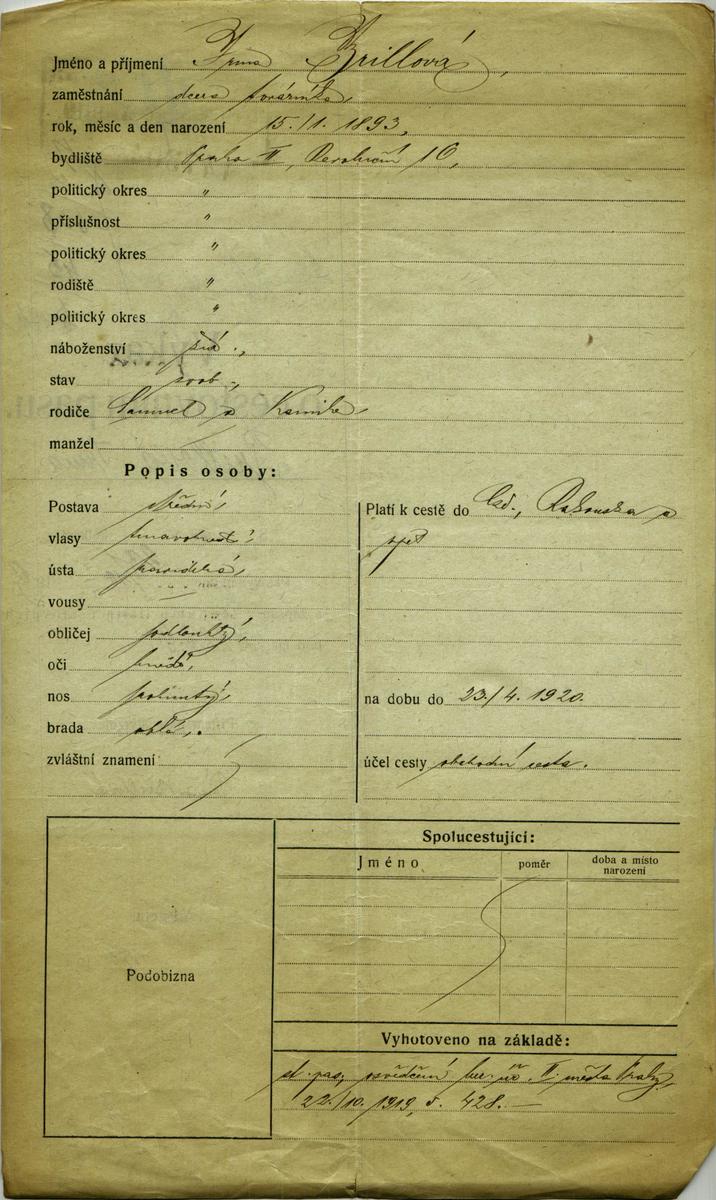 Jméno a příjmení Irma Brillová,
zaměstnání dcera továrníka,
rok, měsíc a den narození 15./1. 1893,
bydliště Praha II, Revoluční 10,
politický okres "
příslušnost "
politický okres "
rodiště "
politický okres "
náboženství žid.,
stav svob.,
rodiče Samuel a Kamila,
manžel
Popis osoby:
Postava střední,
vlasy tmavohnědé,
ústa pravidelná,
vousy
obličej podlouhlý,
oči hnědé,
nos
brada oblá,.
zvláštní znamení
Platí k cestě do Rakouska a
zpět
na dobu do 23./4. 1920.
účel cesty obchodní cesta.
Podobizna
Spolucestující:
Jméno poměr doba a místo narození
Vyhotoveno na základě:
st. pas, osvědčení ber. úř. II. města Prahy,
22./10. 1919, č. 428.—